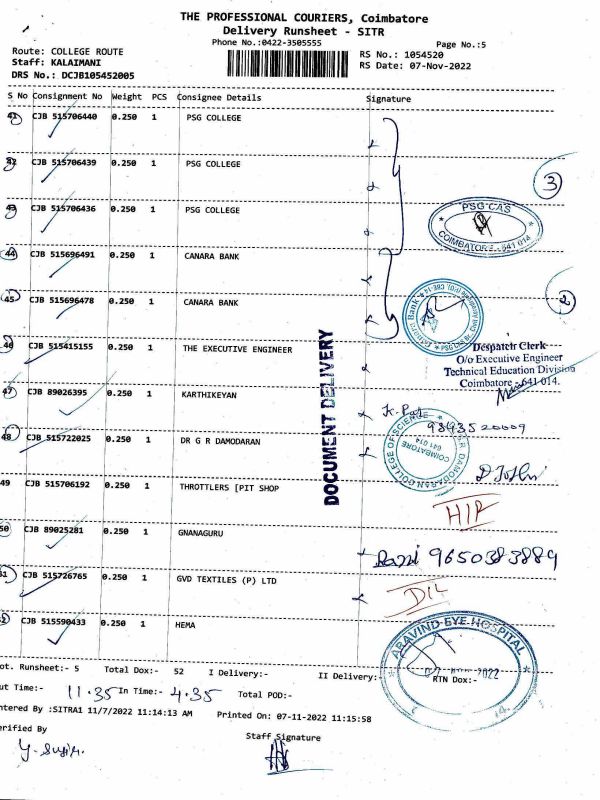 THE PROFESSIONAL COURIERS, Coimbatore
Delivery Runsheet - SITR
Phone No.:0422-3505555
Page No.:5
Route: COLLEGE ROUTE
RS No.: 1054520
Staff: KALAIMANI
RS Date: 07-Nov-2022
DRS No.: DCJB105452005
S No Consignment No Weight PCS Consignee Details Signature
41 CJB 515706440 0.250 1 PSG COLLEGE
42 CJB 515706439 0.250 1 PSG COLLEGE
3
43 CJB 515706436 0.250 1 PSG COLLEGE
PSG CAS
COIMBATORE - 641 014
44 CJB 515696491 0.250 1 CANARA BANK
45 CJB 515696478 0.250 1 CANARA BANK
2
46 CJB 515415155 1 THE EXECUTIVE ENGINEER
Despatch Clerk
O/o Executive Engineer
Technical Education Division
Coimbatore - 641 014.
DOCUMENT DELIVERY
47 CJB 89026395 0.250 1 KARTHIKEYAN
48 CJB 515722025 0.250 1 DR G R DAMODARAN
G.R. DAMODARAN COLLEGE OF SCIENCE
COIMBATORE
641 014
49 CJB 515706192 0.250 1 THROTTLERS [PIT SHOP
50 CJB 89025281 0.250 1 GNANAGURU
9650383889
51 CJB 515726765 0.250 1 GVD TEXTILES (P) LTD
D/L
CJB 515590433 0.250 1 HEMA
ARAVIND EYE HOSPITAL
2022
ot. Runsheet:- 5 Total Dox:- 52 I Delivery:- II Delivery:- RTN Dox:-
ut Time:- 11.35 In Time:- 4.35 Total POD:-
ntered By :SITRA1 11/7/2022 11:14:13 AM Printed On: 07-11-2022 11:15:58
erified By
Staff Signature